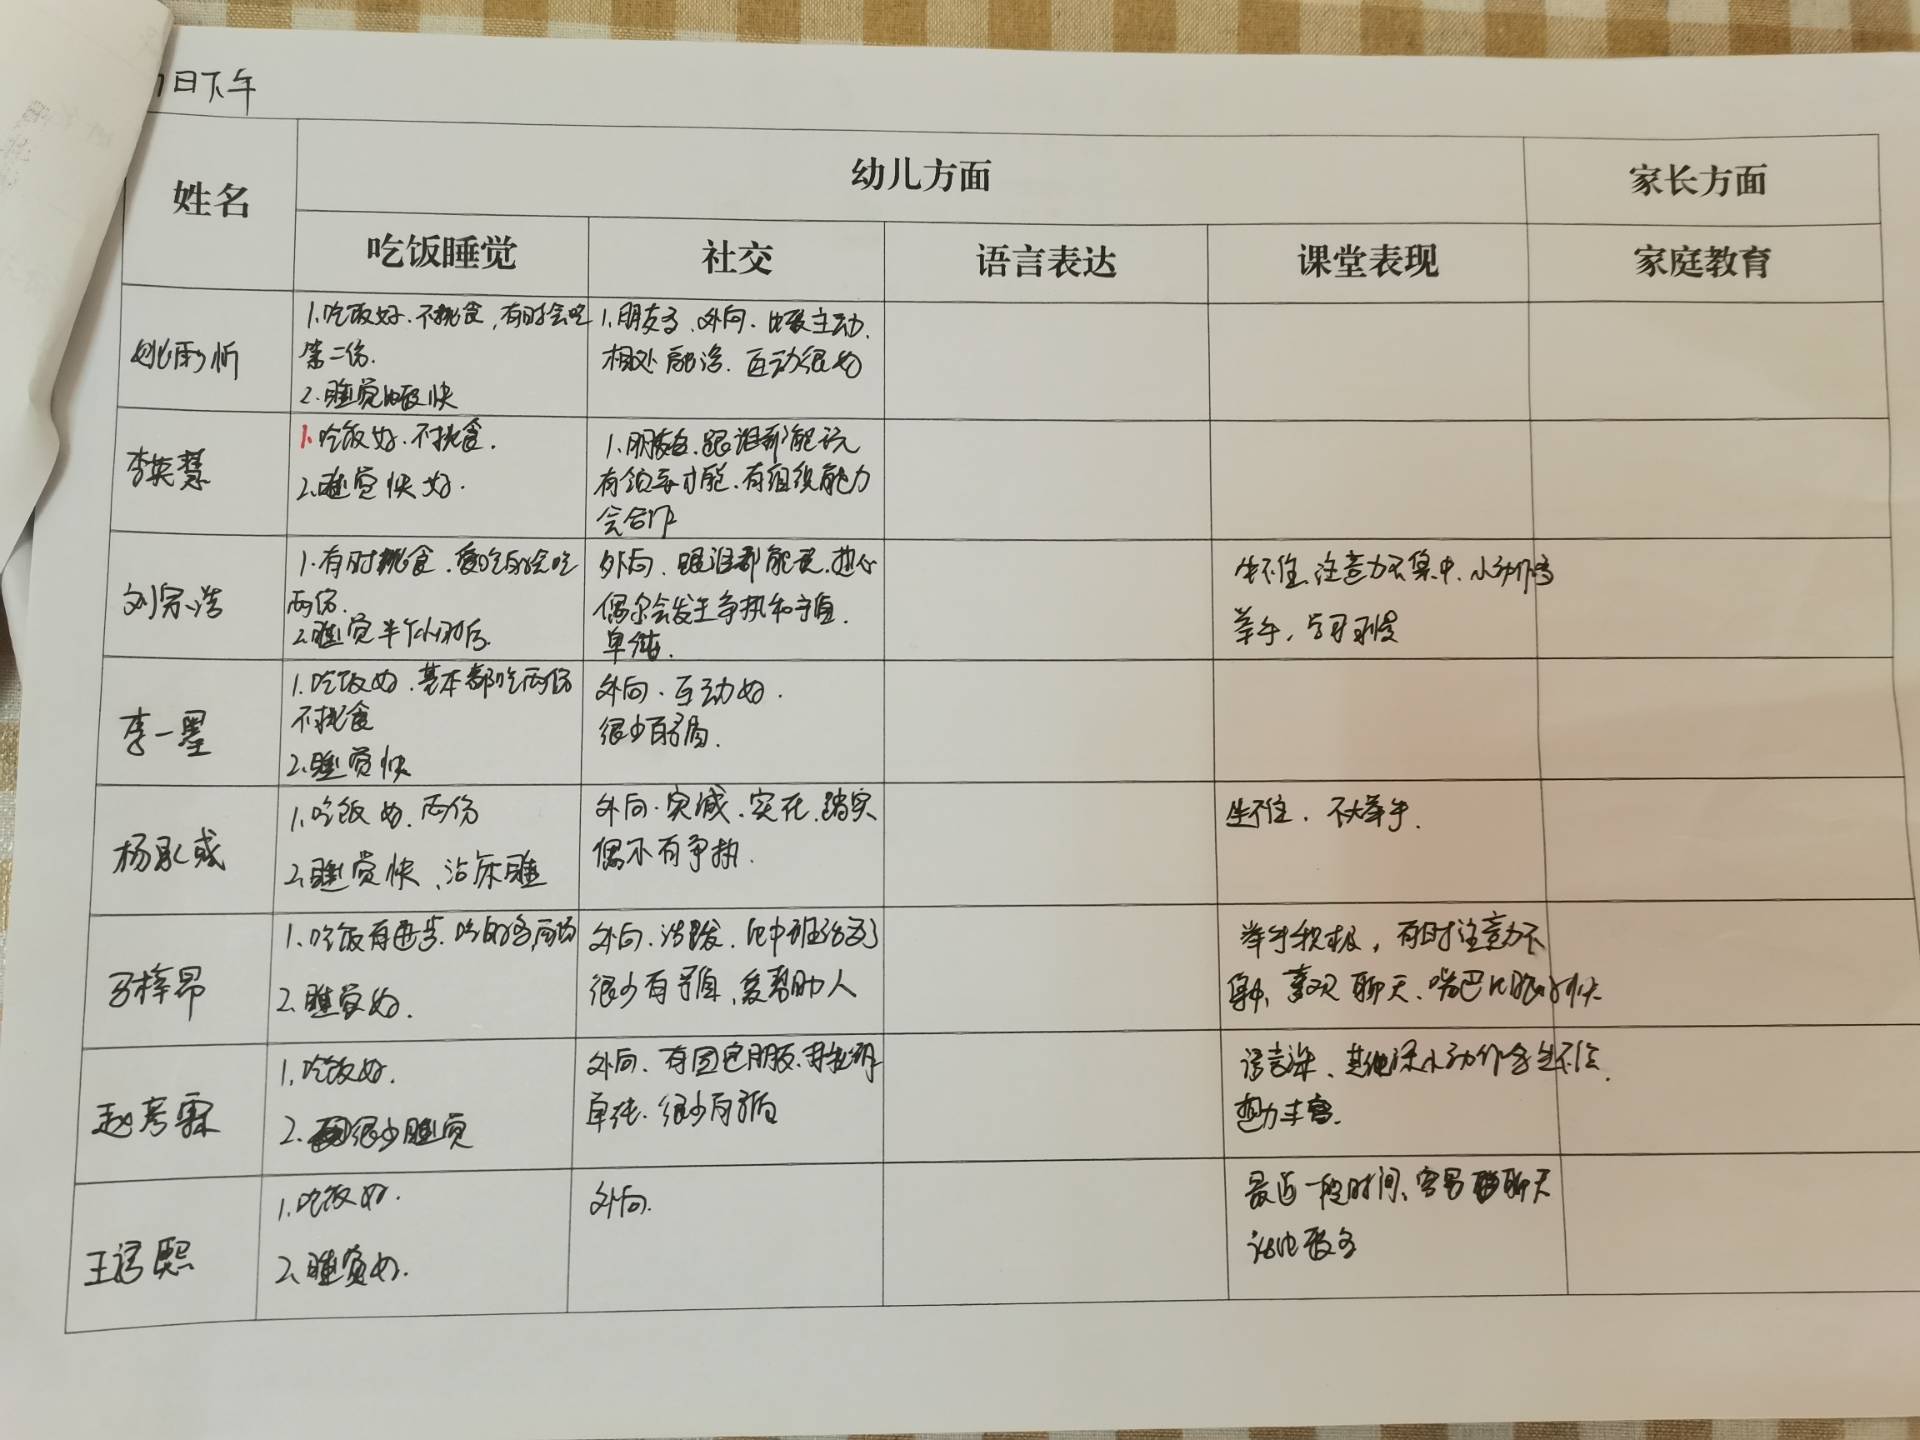 日下午
姓名
幼儿方面
家长方面
吃饭睡觉
社交
语言表达
课堂表现
家庭教育
姚雨忻
1.吃饭好.不挑食,有时会吃
第二份.
2.睡觉比较快
1.朋友多.外向.比较主动.
相处融洽.互动很好
李英慧
1.吃饭好.不挑食.
2.睡觉快好.
1.朋友多.跟谁都能玩
有领导才能.有组织能力
会合作
刘宗浩
1.有时挑食.爱吃的会吃
两份.
2.睡觉半个小时后.
外向.跟谁都能玩.热心
偶尔会发生争执和矛盾.
单纯.
坐不住.注意力不集中.小动作多
举手,学习慢
李一墨
1.吃饭好.基本都吃两份
不挑食
2.睡觉快
外向.互动好.
很少有矛盾.
杨承彧
1.吃饭好.两份
2.睡觉快、沾床睡
外向.实诚.实在.踏实
偶尔有争执.
坐不住.不大举手.
马梓昂
1.吃饭有进步.吃的多,两份
2.睡觉好.
外向.活跃.比中班活跃
很少有矛盾,爱帮助人
举手积极,有时注意力不
集中,喜欢聊天.嘴巴比较快
赵彦霖
1.吃饭好.
2.很少睡觉
外向.有固定朋友.
单纯.很少有矛盾
语言课、其他课小动作多坐不住.
想力丰富.
王
1.吃饭好.
2.睡觉好.
外向.
最近一段时间、容易聊天
话比较多